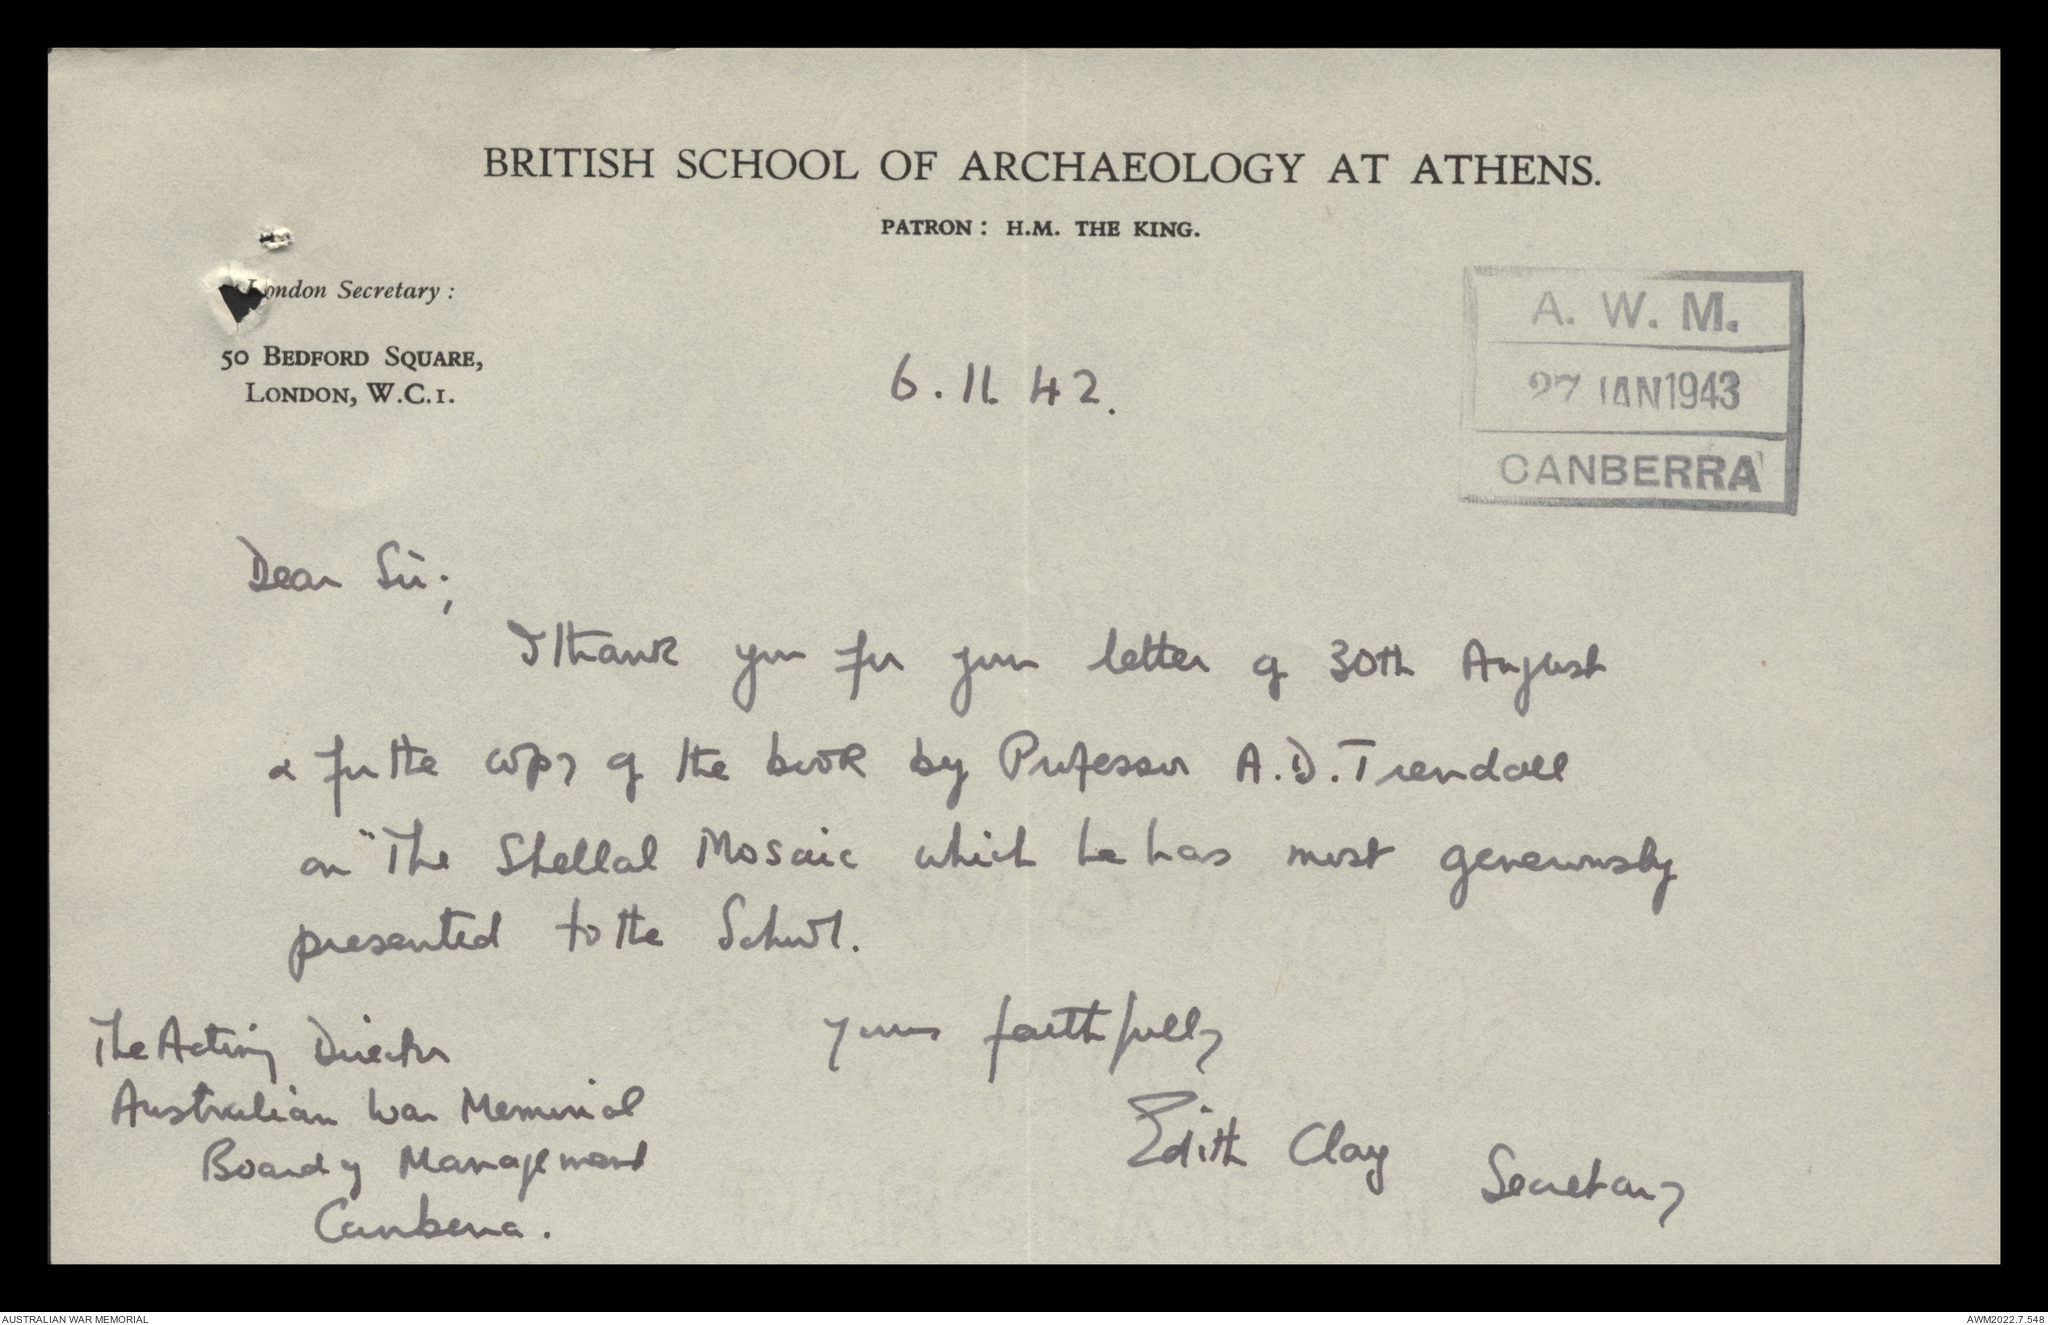 BRITISH SCHOOL OF ARCHAEOLOGY AT ATHENS.
PATRON: H.M. THE KING.
London Secretary:
50 BEDFORD SQUARE,
LONDON, W.C.1.
6.11.42.
A. W. M.
27 JAN 1943
CANBERRA
Dear Sir,
I thank you for your letter of 30th August
& for the copy of the book by Professor A.D. Trendall
on "The Shellal Mosaic which he has most generously
presented to the School.
Yours faithfully
Edith Clay Secretary
The Acting Director
Australian War Memorial
Board of Management
Canberra.
AUSTRALIAN WAR MEMORIAL
AWM2022.7.548